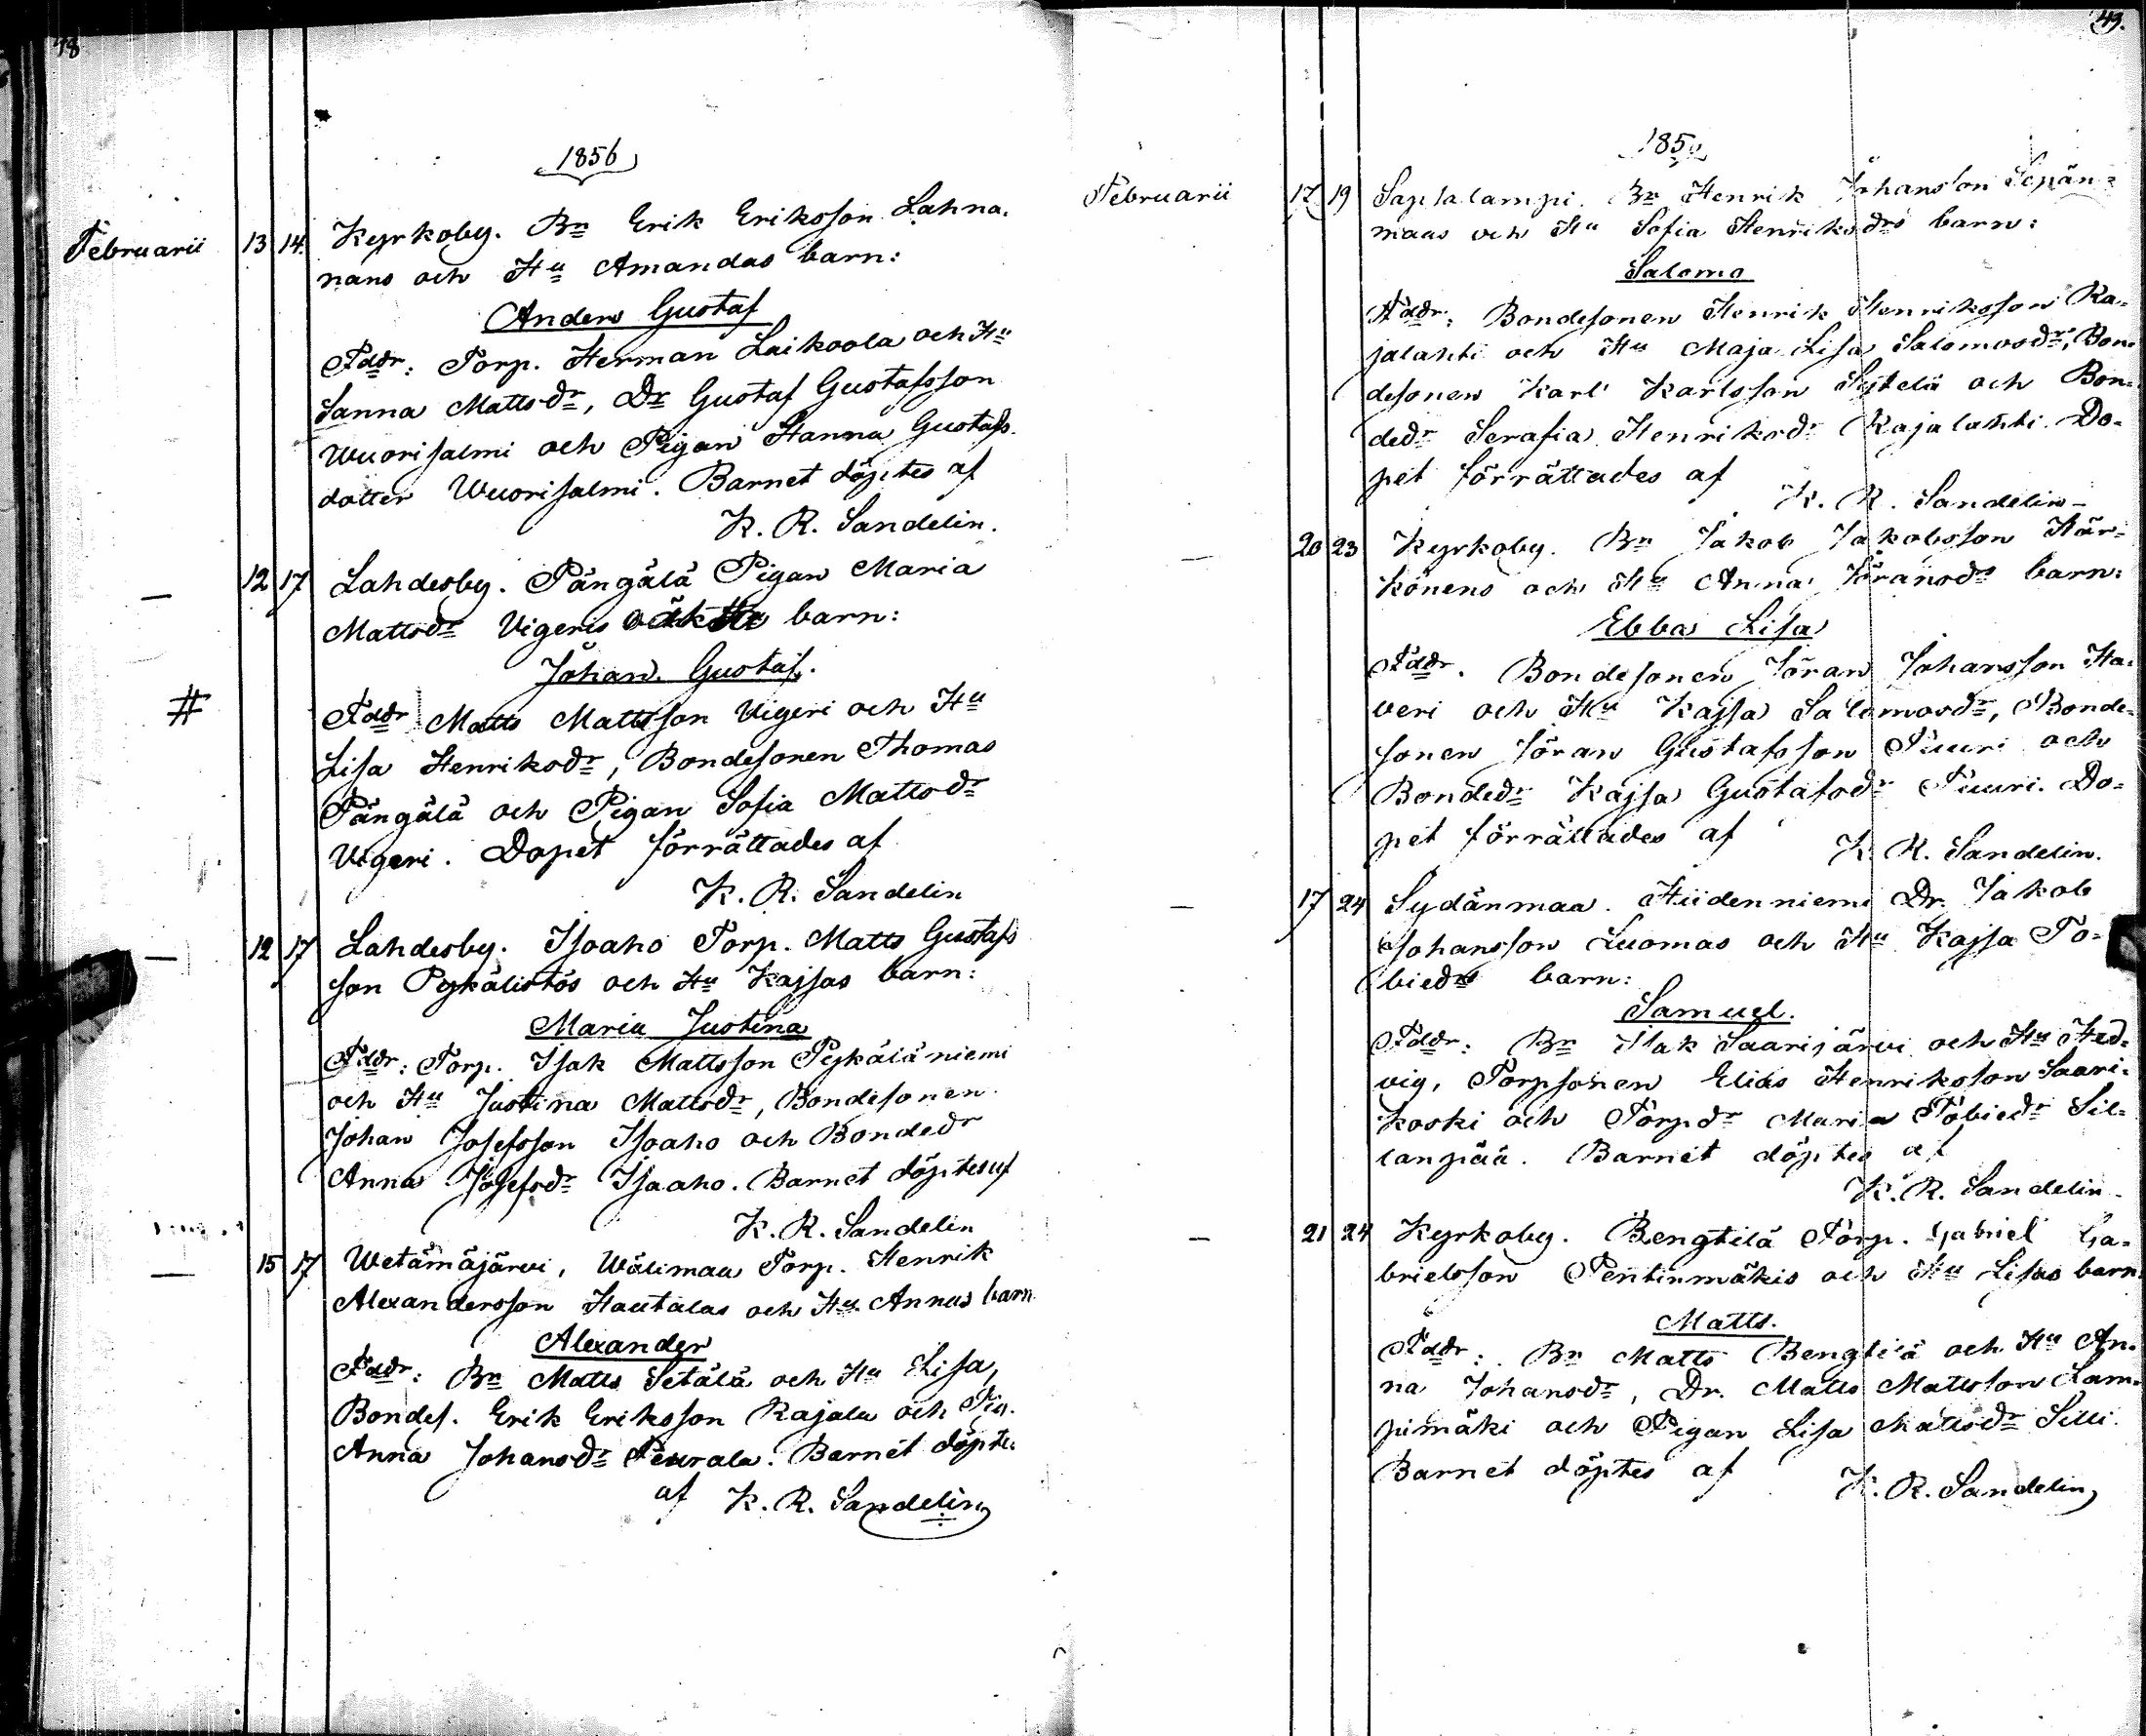 18
1856
Februarii 13 14. Kyrkoby. Bn Erik Eriksson Lahna-
nans och Hu Amandas barn:
Anders Gustaf
Fddr: Torp. Herman Laikoola och Hu
Sanna Mattsdr, Dr Gustaf Gustafsson
Wuorisalmi och Pigan Hanna Gustafs-
dotter Wuorisalmi. Barnet döptes af
K. R. Sandelin.
12 17 Lahdesby. Pängälä Pigan Maria
Mattsdr Vigeris oäkta barn:
Johan Gustaf.
# Fddr Matts Mattsson Vigeri och Hu
Lisa Henriksdr, Bondesonen Thomas
Pängälä och Pigan Sofia Mattsdr
Vigeri. Dopet förrättades af
K. R. Sandelin
12 17 Lahdesby. Isoaho Torp. Matts Gustafs
son Pykälistös och Hu Kajsas barn:
Maria Justina
Fddr: Torp. Isak Mattsson Pykäläniemi
och Hu Justina Mattsdr, Bondesonen
Johan Josefsson Isoaho och Bondedr
Anna Josefsdr Isoaho. Barnet döptes af
K. R. Sandelin
15 17 Wetämäjärvi, Wälimaa Torp. Henrik
Alexandersson Hautalas och Hu Annas barn
Alexander
Fddr: Bn Matts Setälä och Hu Lisa,
Bondes. Erik Eriksson Rajala och Pig.
Anna Johansdr Peurala. Barnet döptes
af K. R. Sandelin
49.
185
Februarii 17 19 Saptalampi. Bn Henrik Johansson Sepän-
maas och Hu Sofia Henriksdrs barn:
Salomo
Fddr: Bondesonen Henrik Henriksson Ra-
jalahti och Hu Maja Lisa Salomosdr, Bon-
desonen Karl Karlsson och Bon-
dedr Serafia Henriksdr Rajalahti. Do-
pet förrättades af
K. R. Sandelin
20 23 Kyrkoby. Bn Jakob Jakobsson Här-
könens och Hu Anna Göransdrs barn:
Ebba Lisa
Fddr. Bondesonen Jöran Johansson Ha-
veri och Hu Kajsa Salomosdr, Bonde-
sonen Jöran Gustafsson Tuuri och
Bondedr Kajsa Gustafsdr Tuuri. Do-
pet förrättades af
K. R. Sandelin.
17 24 Sydänmaa. Hiidenniemi Dr. Jakob
Johansson Luomas och Hu Kajsa To-
biedrs barn:
Samuel.
Fddr: Bn Isak Saarijärvi och Hu Hed-
vig, Torpsonen Elias Henriksson Saari-
koski och Torpdr Maria Tobiedr Sil-
lanpää. Barnet döptes af
K. R. Sandelin
21 24 Kyrkoby. Bengtilä Torp. Gabriel Ga-
brielsson Pentinmäkis och Hu Lisas barn
Matts.
Fddr: Bn Matts Bengtilä och Hu An-
na Johansdr, Dr. Matts Mattsson Lam-
pimäki och Pigan Lisa Mattsdr Silli.
Barnet döptes af
K. R. Sandelin